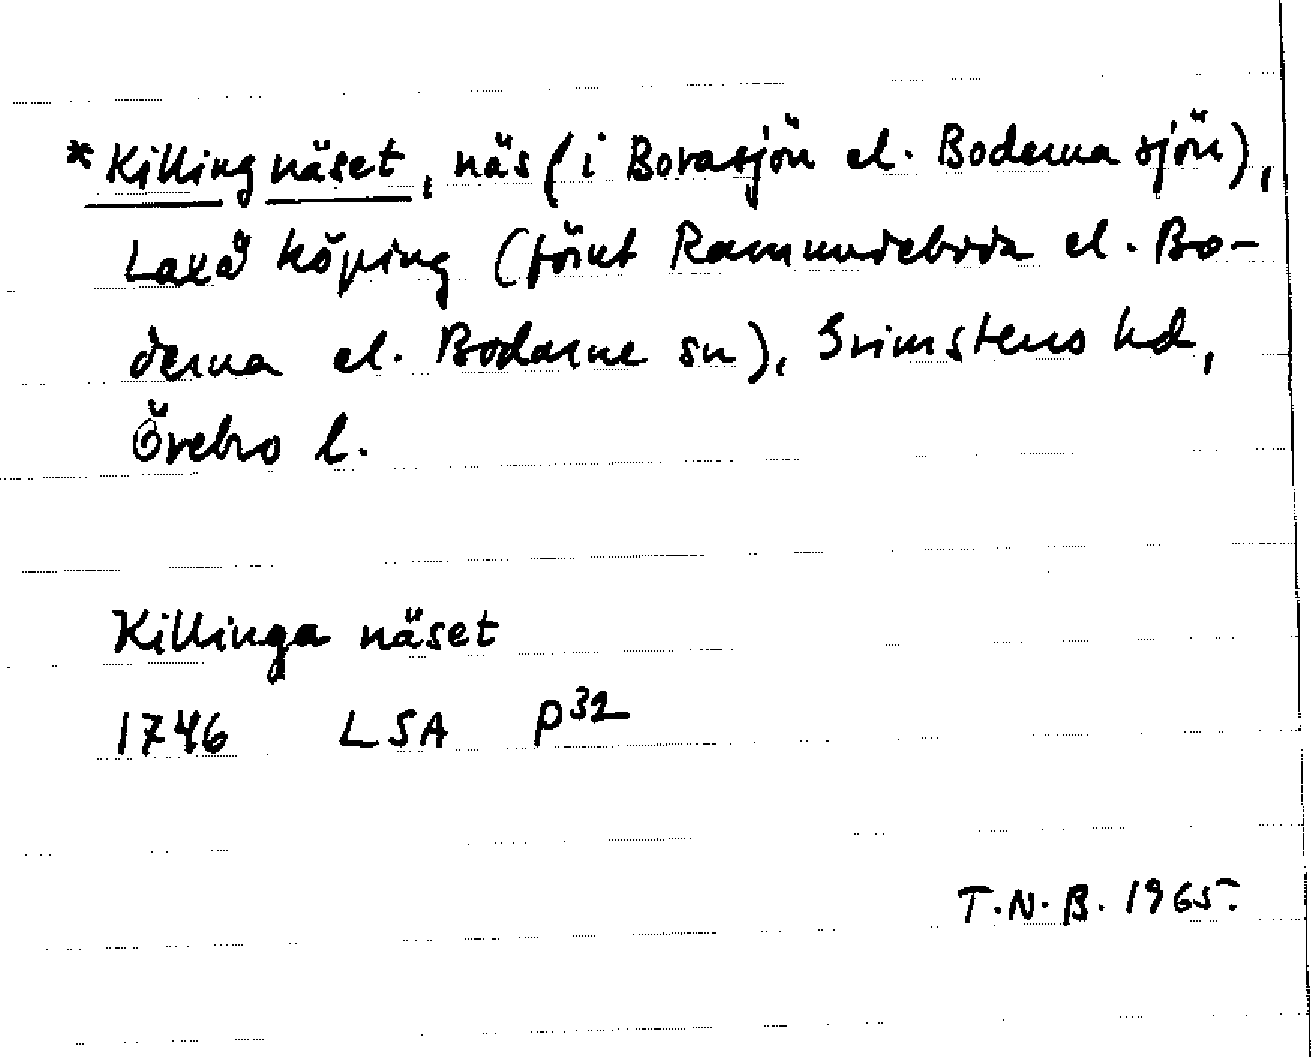 *Killingnäset, näs (i Borasjön el. Boderna sjön),
Laxå köping (förut Ramundeboda el. Bo-
derna el. Bodarne sn), Grimstens hd,
Örebro l.
Killinga näset
1746 LSA P32
T.N.B. 1965.